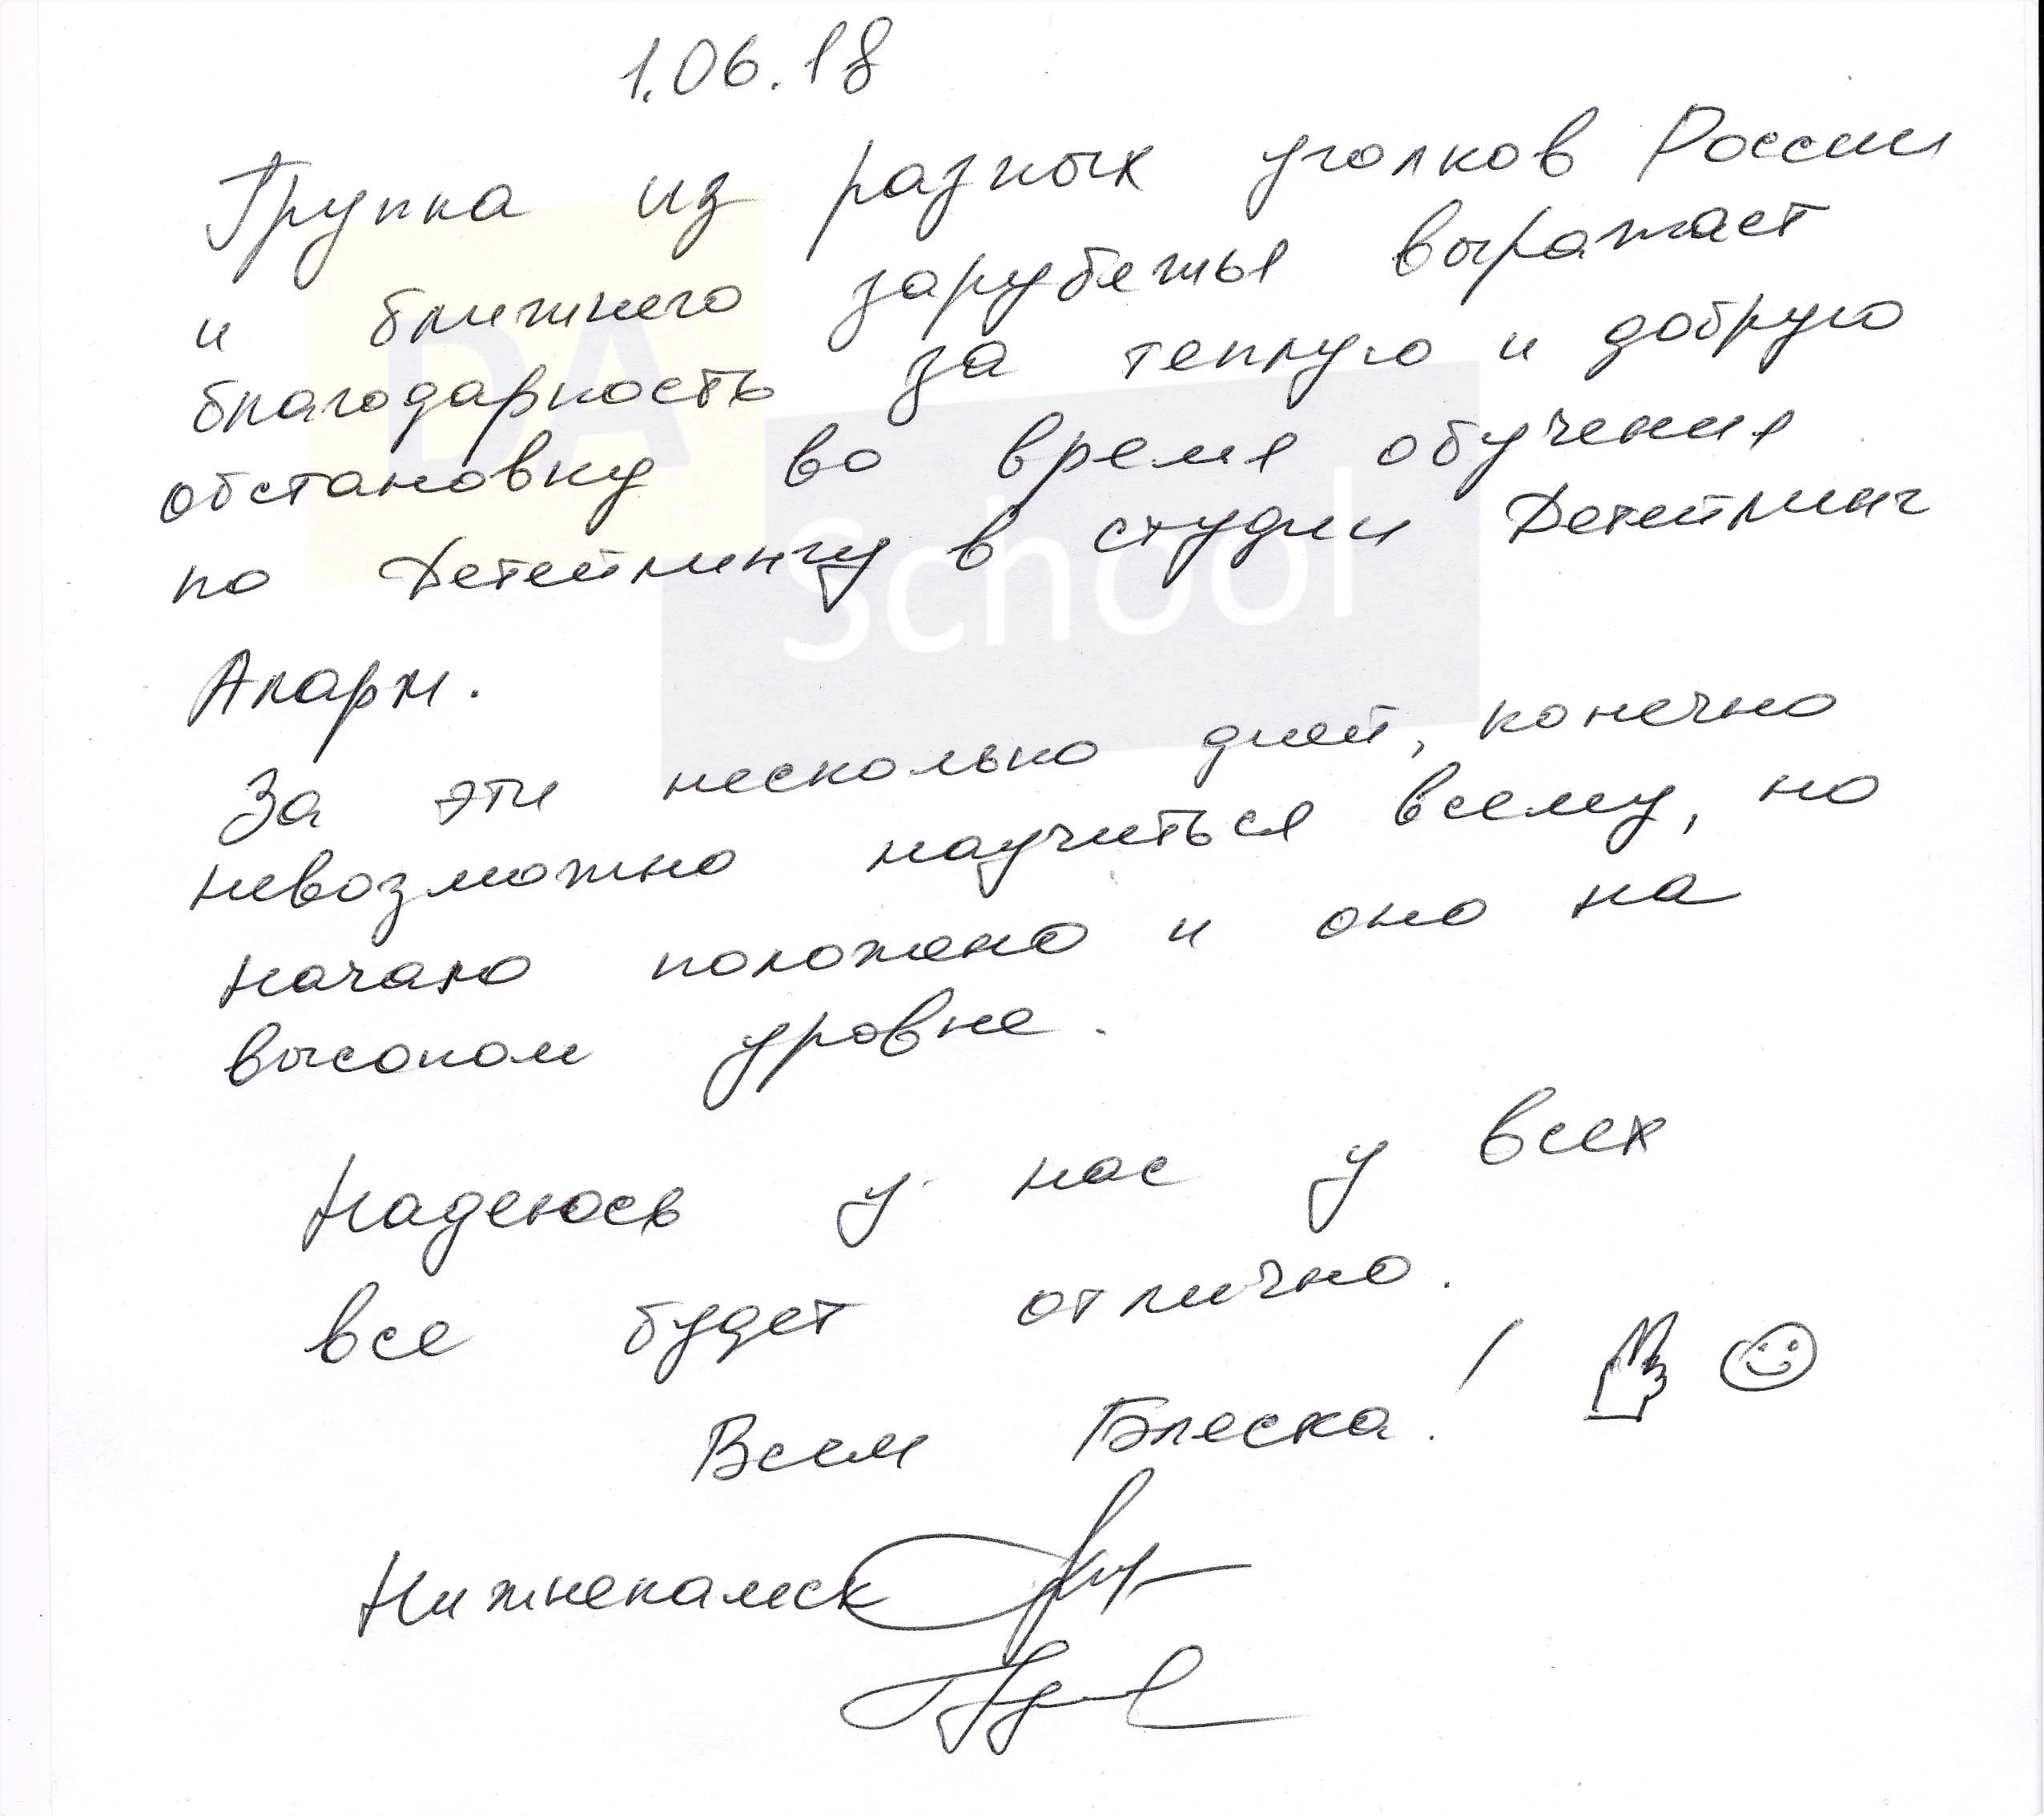 1.06.18
Группа из разных уголков России
и ближнего зарубежья выражает
благодарность за теплую и добрую
обстановку во время обучения
по Детейлингу в студии Детейлинг
Аларм.
За эти несколько дней, конечно
невозможно научиться всему, но
начало положено и оно на
высоком уровне.
Надеюсь у нас у всех
все будет отлично.
Всем Блеска!
Нижнекамск
DA
School